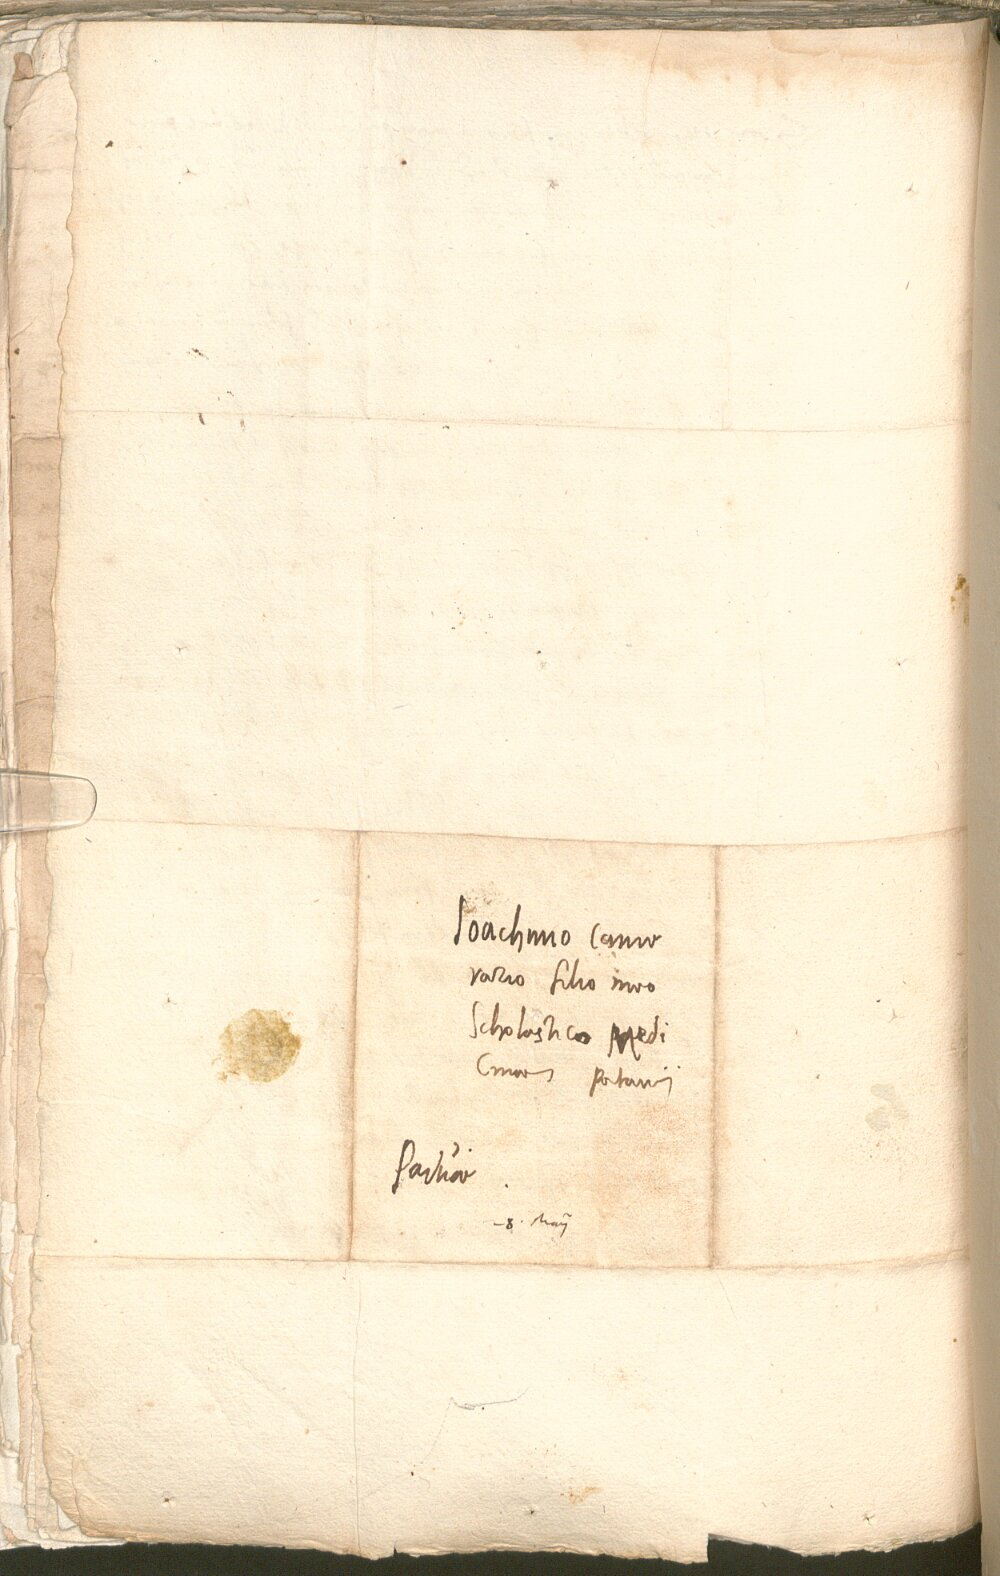 Ioachimo Came
rario filio meo
Scholastico Medi
cinae Patavij
Padoae
8. Maij